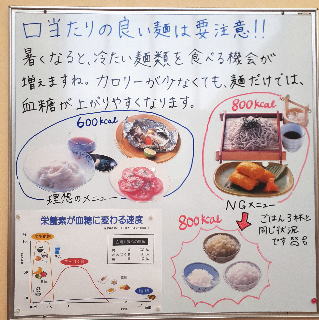 口当たりの良い麺は要注意!!
暑くなると、冷たい麺類を食べる機会が
増えますね。カロリーが少なくても、麺だけでは、
血糖が上がりやすくなります。
600kcal
理想のメニュー
800kcal
NGメニュー
栄養素が血糖に変わる速度
800kcal
ごはん3杯と
同じ状況
です